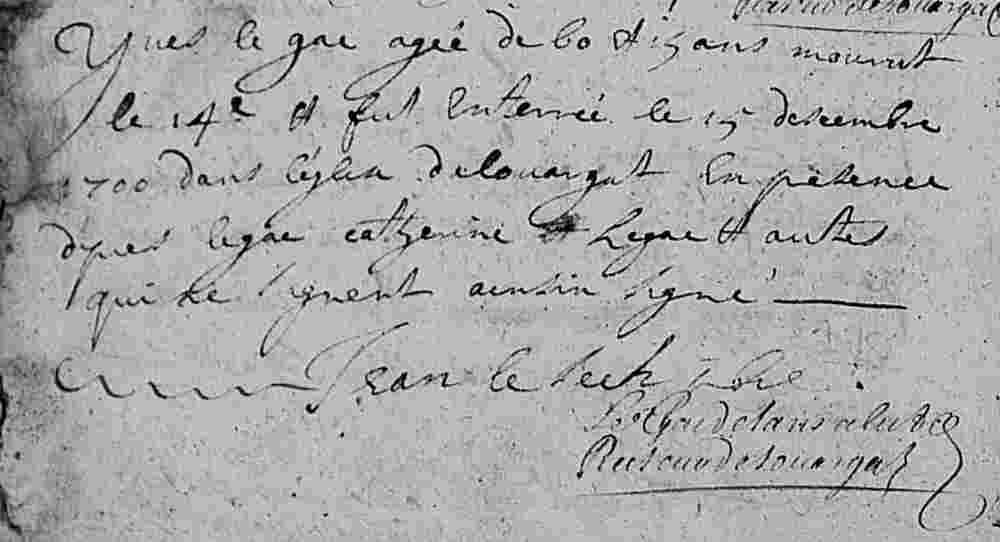 Recteur de Louargat
Yves le gac agée de 60 et 15 ans mourut
le 14e et fut Enterré le 15 descembre
1700 dans l'églisse de Louargat En présence
d'yves legac catherine Legac et autres
qui ne signent ainsin signé
Jean le
Recteur de Louargat